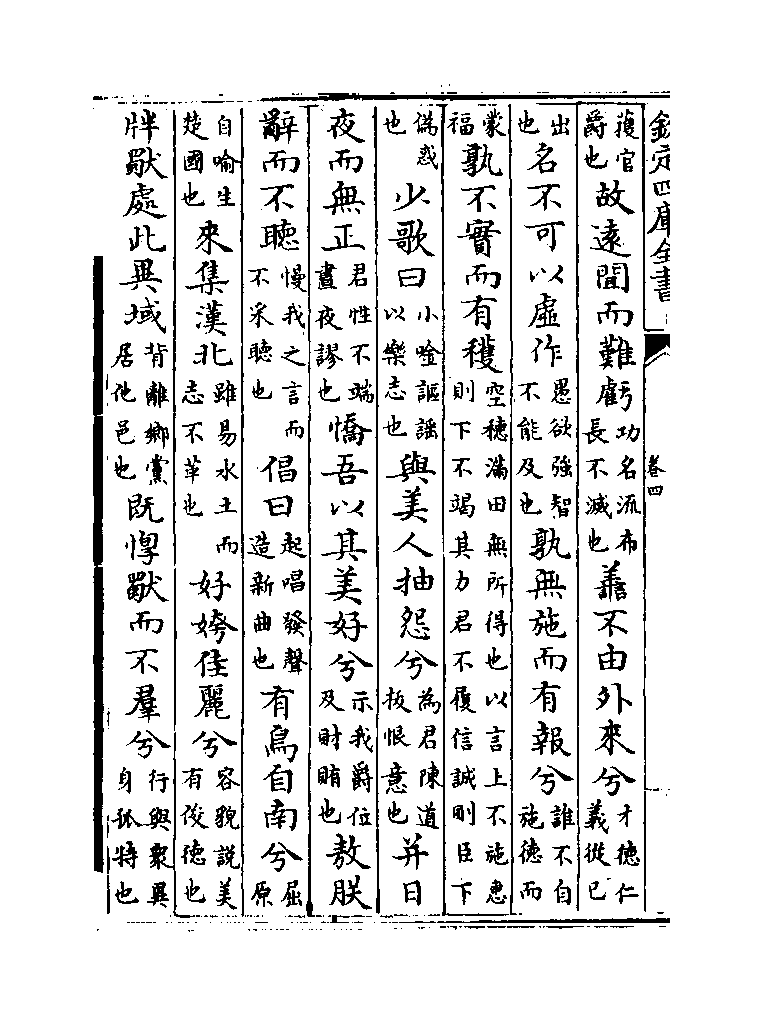 欽定四庫全書
卷四
獲官爵也故遠聞而難虧功名流布長不滅也善不由外來兮才德仁義從己
出也名不可以虛作愚欲強智不能及也孰無施而有報兮誰不自施德而
蒙福孰不實而有穫空穗滿田無所得也以言上不施惠則下不竭其力君不履信誠則臣下
偽惑也少歌曰小唫謳謠以樂志也與美人抽怨兮為君陳道拔恨意也并日
夜而無正君性不端晝夜謬也憍吾以其美好兮示我爵位及財賄也敖朕
辭而不聽慢我之言而不采聽也倡曰起唱發聲造新曲也有鳥自南兮屈原
自喻生楚國也來集漢北雖易水土而志不革也好姱佳麗兮容貌說美有俊德也
牉獨處此異域背離鄉黨居他邑也既惸獨而不羣兮行與衆異身孤特也